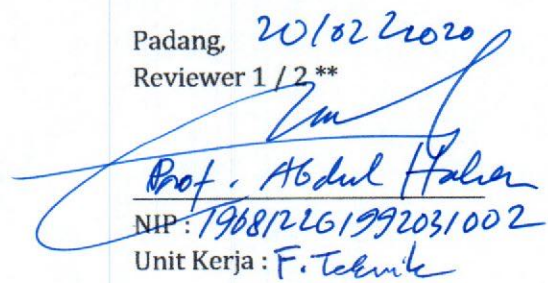 Padang, 20/02 2020
Reviewer 1 / 2 **
Prof. Abdul Hakam
NIP : 196812261992031002
Unit Kerja : F. Teknik